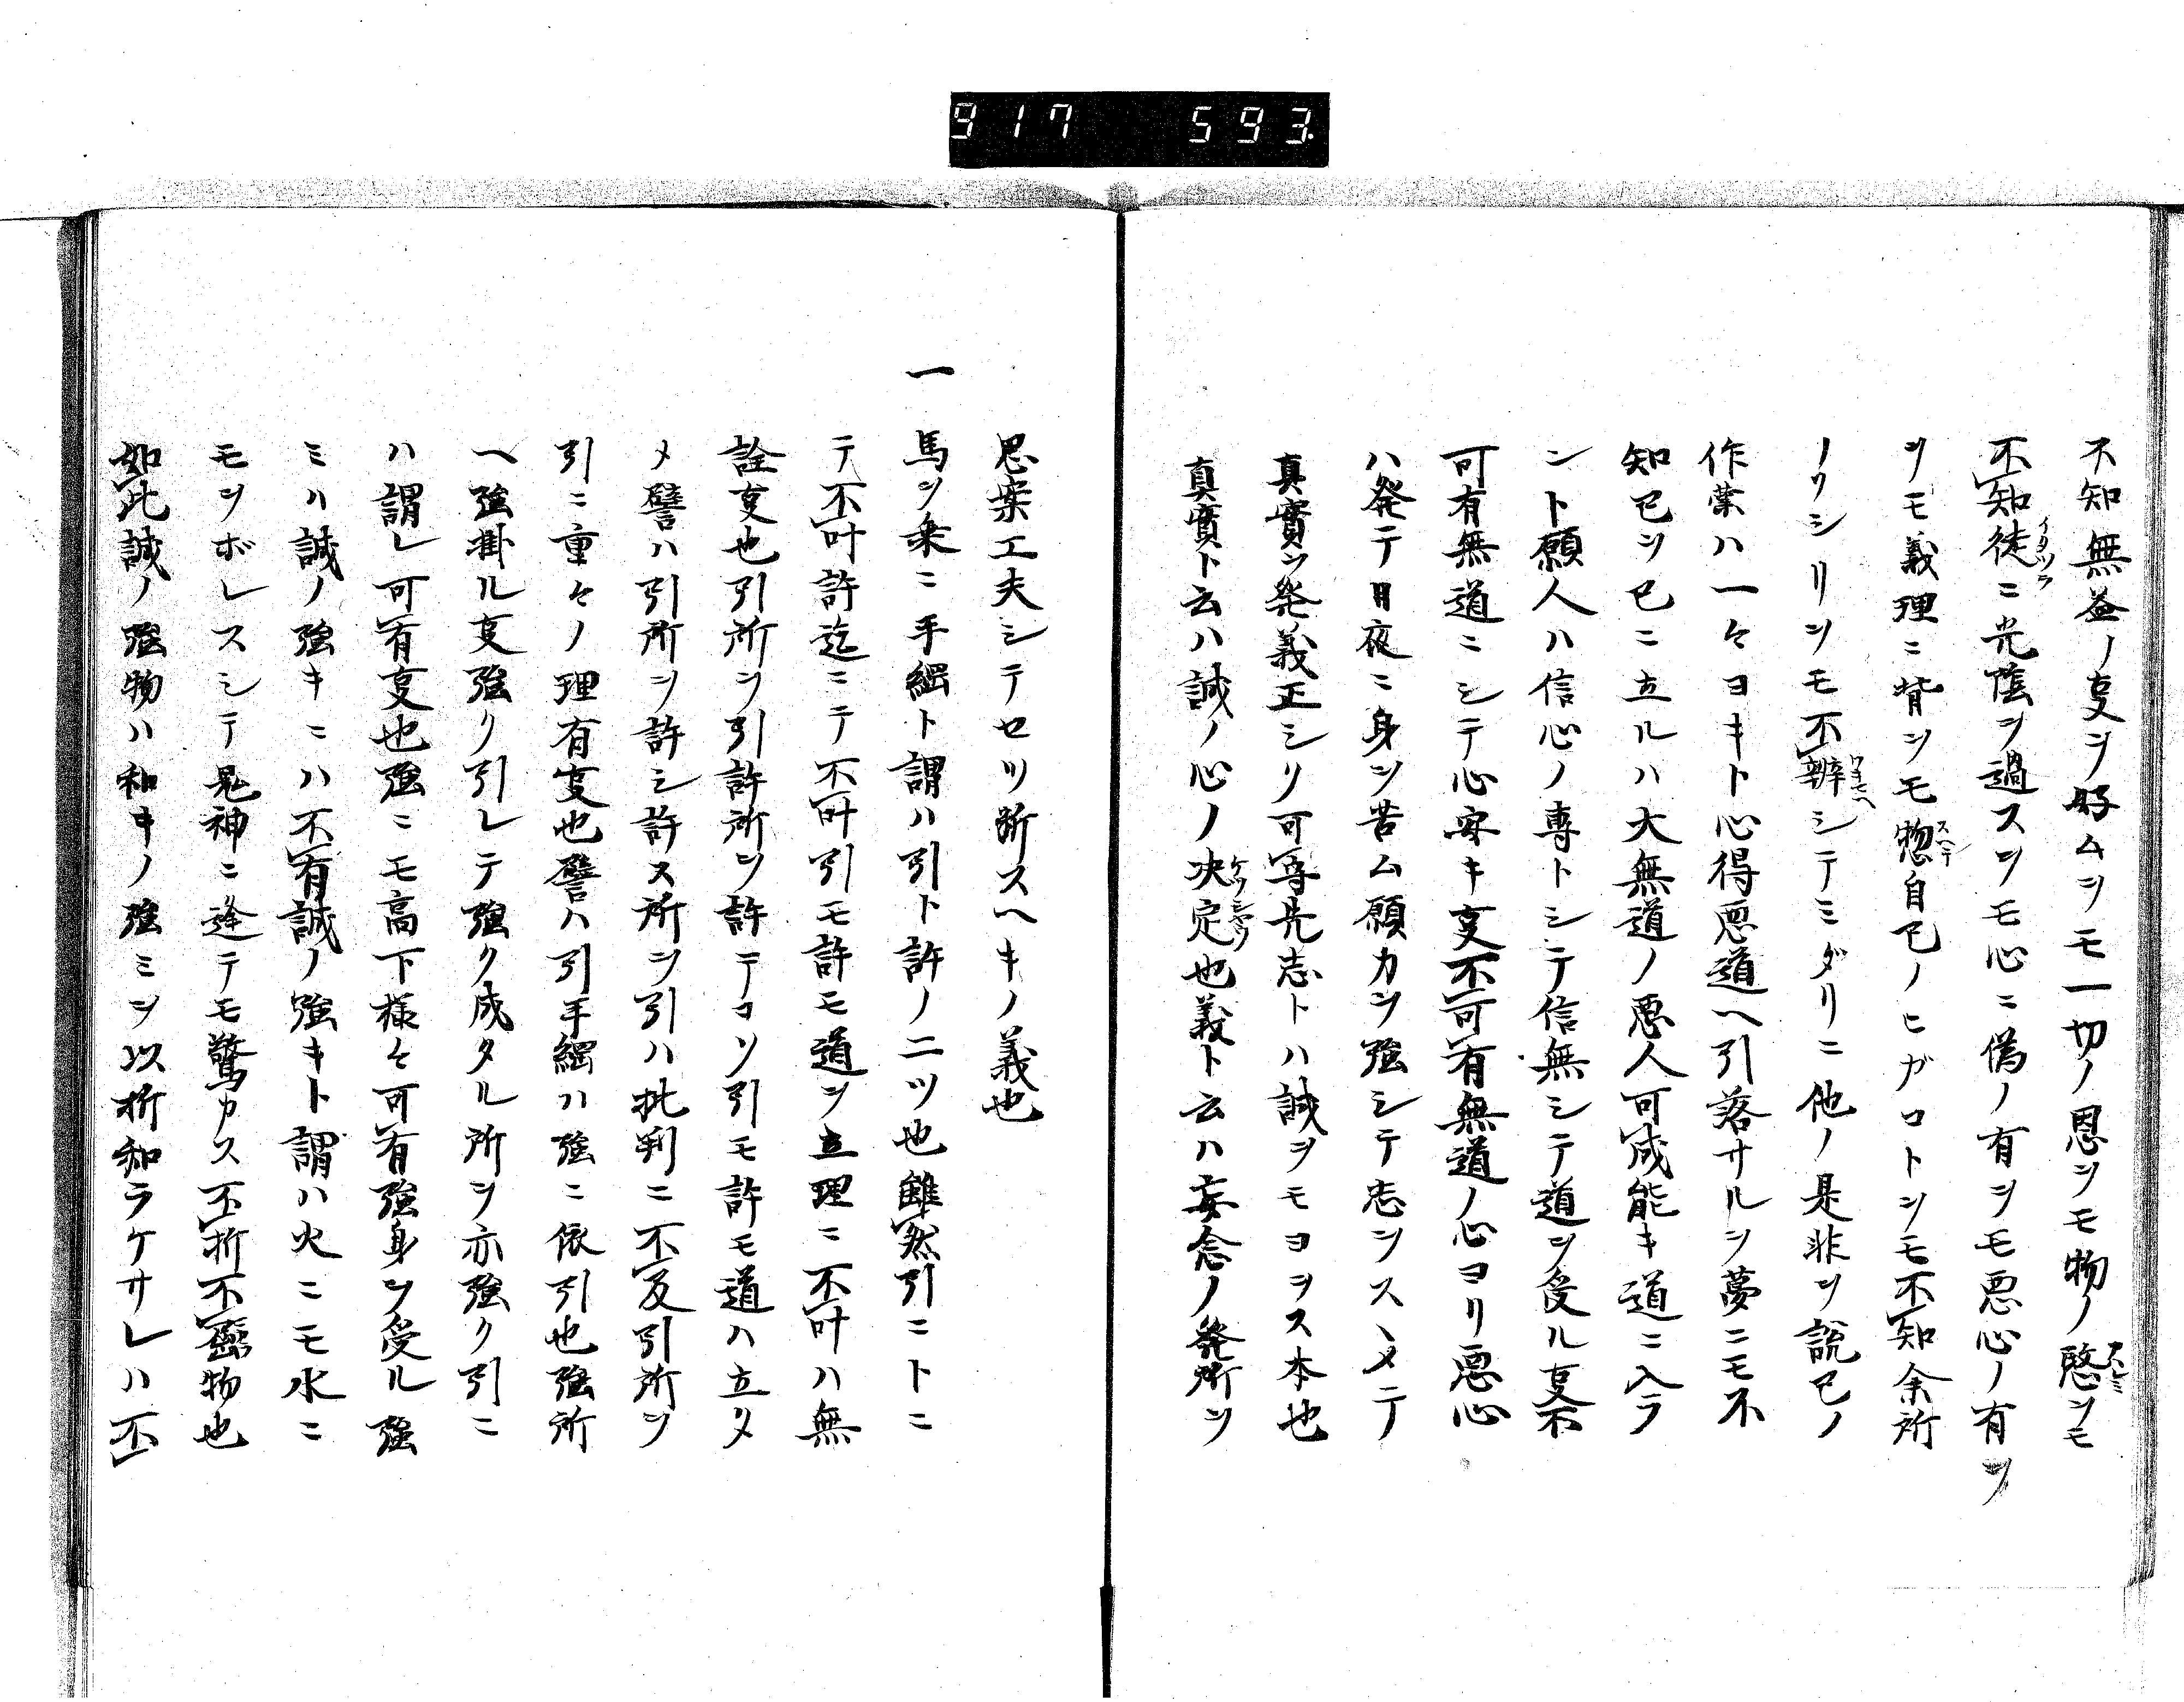 917 593
不知無益ノ支ヲ好ムヲモ一切ノ恩ヲモ物ノ愍ヲモ
不知徒ニ光陰ヲ過スヲモ心ニ偽ノ有ヲモ悪心ノ有ヲ
ヲモ義理ニ背ヲモ惣自己ノヒガコトヲモ不知余所
ノソシリヲモ不辨シテミダリニ他ノ是非ヲ説己ノ
作業ハ一々ヨキト心得悪道ヘ引落サルヲ夢ニモ不
知己ヲ己ニ立ルハ大無道ノ悪人可成能キ道ニ入ラ
ント願人ハ信心ノ專トシテ信無シテ道ヲ受ル支不
可有無道ニシテ心安キ支不可有無道ノ心ヨリ悪心
ハ発テ日夜ニ身ヲ苦ム願カヲ強シテ志ヲスヽメテ
真實ヲ発義正シリ可専先志トハ誠ヲモヨヲス本也
真實ト云ハ誠ノ心ノ决定也義ト云ハ妄念ノ発所ヲ
思案工夫シテセツ断スヘキノ義也
一馬ヲ乗ニ手綱ト謂ハ引ト許ノ二ツ也雖然引ニトニ
テ不叶許迄ニテ不叶引モ許モ道ヲ立理ニ不叶ハ無
詮支也引所ヲ引許所ヲ許テコソ引モ許モ道ハ立タ
メ譬ハ引所ヲ許シ許ス所ヲ引ハ批判ニ不及引所ヲ
引ニ重々ノ理有支也譬ハ引手綱ハ強ニ依引也強所
ヘ強掛ル支強ク引レテ強ク成タル所ヲ亦強ク引ニ
ハ謂レ可有支也強ニモ高下様々可有強身ヲ受ル強
ミハ誠ノ強キニハ不有誠ノ強キト謂ハ火ニモ水ニ
モヲボレスシテ鬼神ニ逢テモ驚カス不折不齊物也
如此誠ノ強物ハ和キノ強ミヲ以折和ラケサレハ不